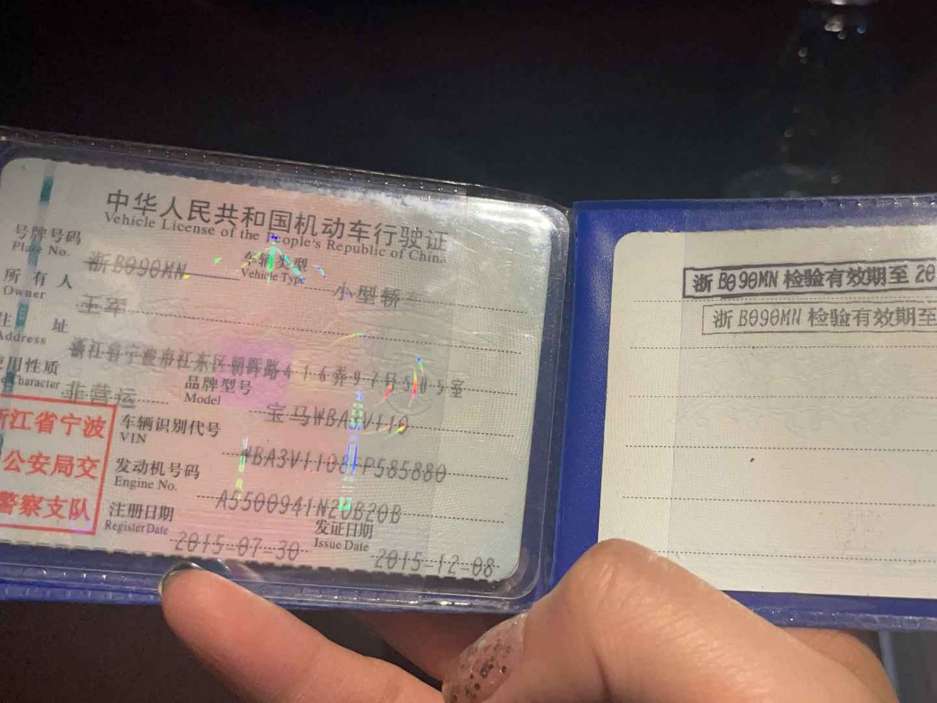 中华人民共和国机动车行驶证
Vehicle License of the People's Republic of China
号牌号码 浙B090MN 车辆类型 小型轿
Plate No. Vehicle Type
所有人 王军
Owner
住 址 浙江省宁波市江东区朝晖路416弄97号505室
Address
使用性质 非营运 品牌型号 宝马WBA3V110
Character Model
车辆识别代号
VIN
发动机号码 A5500941N20B20B
Engine No.
注册日期 2015-07-30 发证日期 2015-12-08
Register Date Issue Date
浙江省宁波
公安局交
警察支队
浙B090MN 检验有效期至 20
浙B090MN 检验有效期至